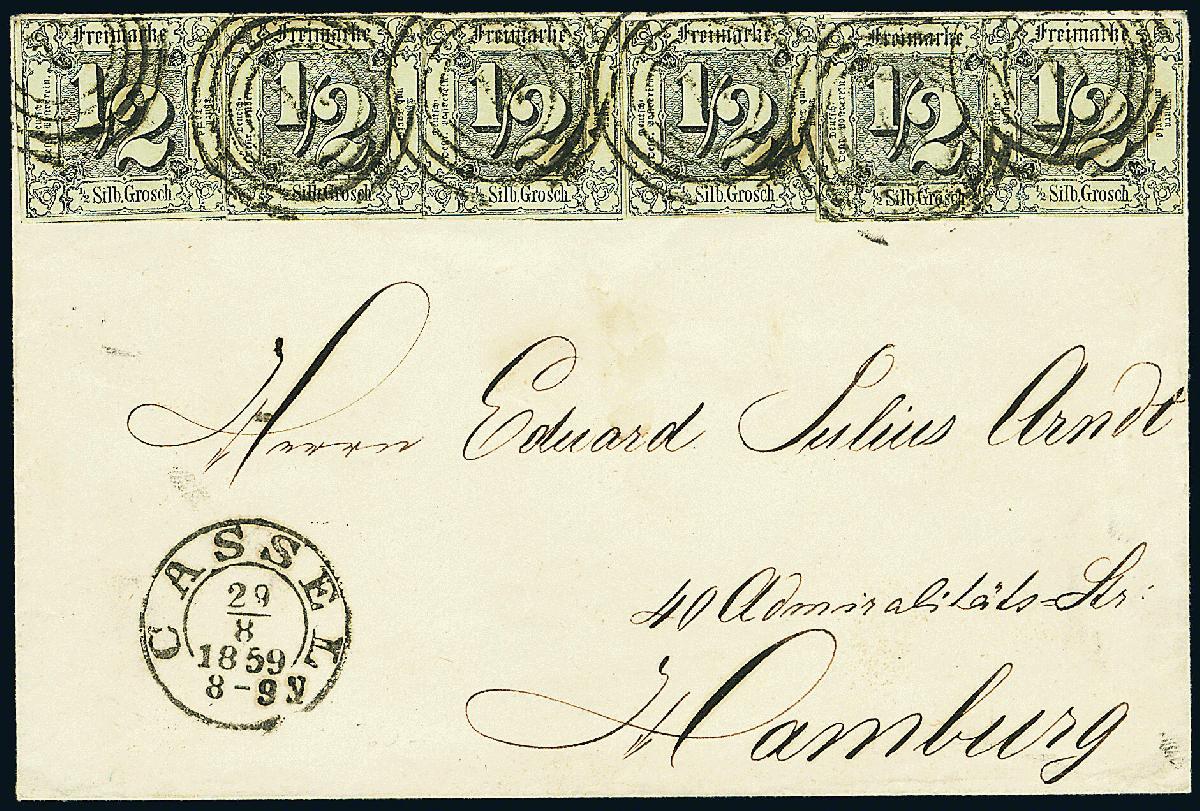 Freimarke Freimarke Freimarke Freimarke Freimarke Freimarke
1/2 1/2 1/2 1/2 1/2 1/2
½ Silb. Grosch. ½ Silb. Grosch. ½ Silb. Grosch. ½ Silb. Grosch. ½ Silb. Grosch. ½ Silb. Grosch.
Herrn Eduard Julius Arndt
40 Admiralitäts=Str:
Hamburg
CASSEL
29
8
1859
8-9 N